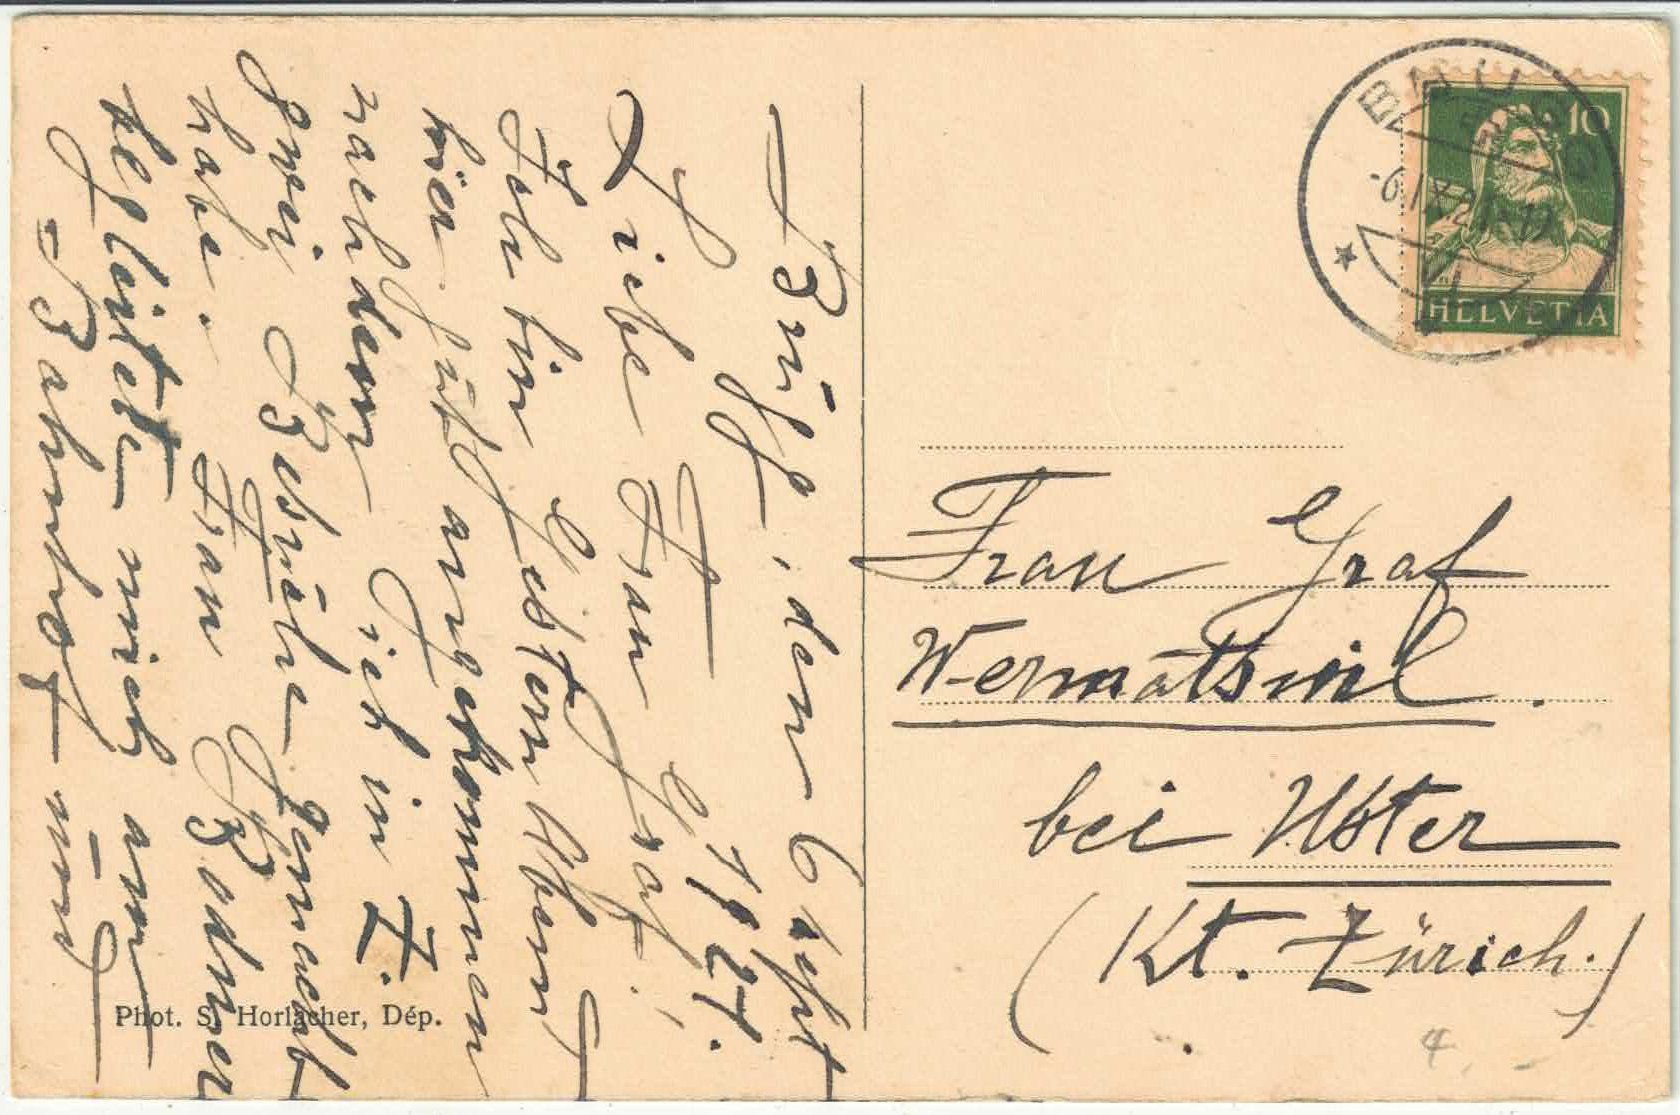 Brugg, den 6 Sept
1921.
Liebe Frau Graf!
Ich bin Gestern Abend
hier gut angekommen
nachdem ich in Z.
zwei Besuche gemacht
habe. Frau Bodmer
begleitete mich am
Bahnhof und
Frau Graf
Wermatswil.
bei Uster
(Kt. Zürich.)
Phot. S. Horlacher, Dép.
10
HELVETIA
-6.IX.21
4